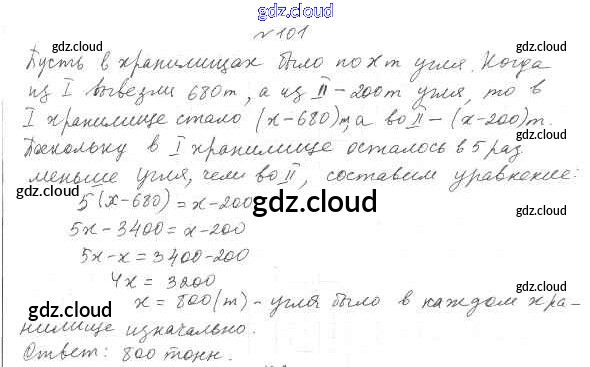 gdz.cloud
№101
gdz.cloud gdz.cloud
Пусть в хранилищах было по x т угля. Когда
из I вывезли 680т, а из II - 200т угля, то в
I хранилище стало (x-680)т, а во II - (x-200)т.
Поскольку в I хранилище осталось в 5 раз
меньше угля, чем во II, составим уравнение:
5(x-680) = x-200
gdz.cloud
5x-3400 = x-200
5x-x = 3400-200
gdz.cloud
4x = 3200
x = 800(т) - угля было в каждом хра-
gdz.cloud gdz.cloud
нилище изначально.
Ответ: 800 тонн.
gdz.cloud